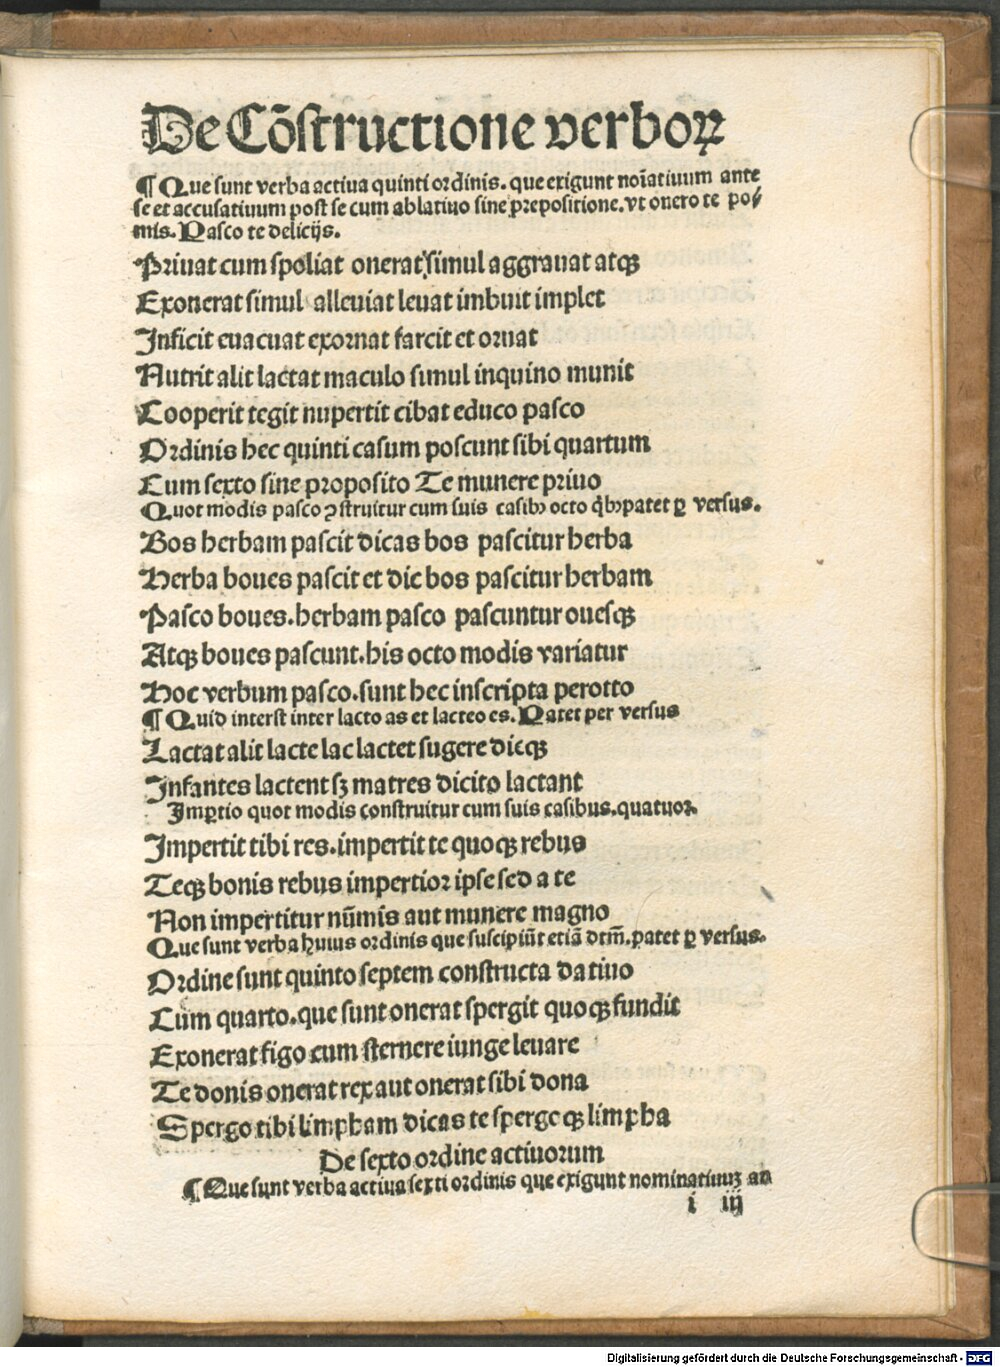 De Cõſtructione verboꝝ
¶ Que sunt verba actiua quinti ordinis. que exigunt noĩatiuum ante
se et accusatiuum post se cum ablatiuo sine prepositione. vt onero te po⸗
mis. Pasco te delicijs.
Priuat cum ſpoliat onerat ſimul aggrauat atqꝫ
Exonerat ſimul alleuiat leuat imbuit implet
Inficit euacuat exornat farcit et ornat
Nutrit alit lactat maculo ſimul inquino munit
Cooperit tegit nupertit cibat educo paſco
Ordinis hec quinti caſum poſcunt ſibi quartum
Cum ſexto ſine propoſito Te munere priuo
Quot modis pasco ꝯstruitur cum suis casibꝫ octo q̃bꝫ patet ꝑ versus.
Bos herbam paſcit dicas bos paſcitur herba
Herba boues paſcit et dic bos paſcitur herbam
Paſco boues. herbam paſco paſcuntur oueſqꝫ
Atqꝫ boues paſcunt. his octo modis variatur
Hoc verbum paſco. ſunt hec inſcripta perotto
¶ Quid interst inter lacto as et lacteo es. Patet per versus
Lactat alit lacte lac lactet ſugere dicqꝫ
Infantes lactent ſꝫ matres dicito lactant
Imꝑtio quot modis construitur cum suis casibus. quatuor.
Impertit tibi res. impertit te quoqꝫ rebus
Teqꝫ bonis rebus impertior ipſe ſed a te
Non impertitur nũmis aut munere magno
Que sunt verba huius ordinis que suscipiũt etiã dtm̃. patet ꝑ versus.
Ordine ſunt quinto ſeptem conſtructa datiuo
Cum quarto. que ſunt onerat ſpergit quoqꝫ fundit
Exonerat figo cum ſternere iunge leuare
Te donis onerat rex aut onerat ſibi dona
Spergo tibi limpham dicas te ſpergeqꝫ limpha
De ſexto ordine actiuorum
¶ Que sunt verba actiua sexti ordinis que exigunt nominatiuuꝫ an
i iij
Digitalisierung gefördert durch die Deutsche Forschungsgemeinschaft - DFG